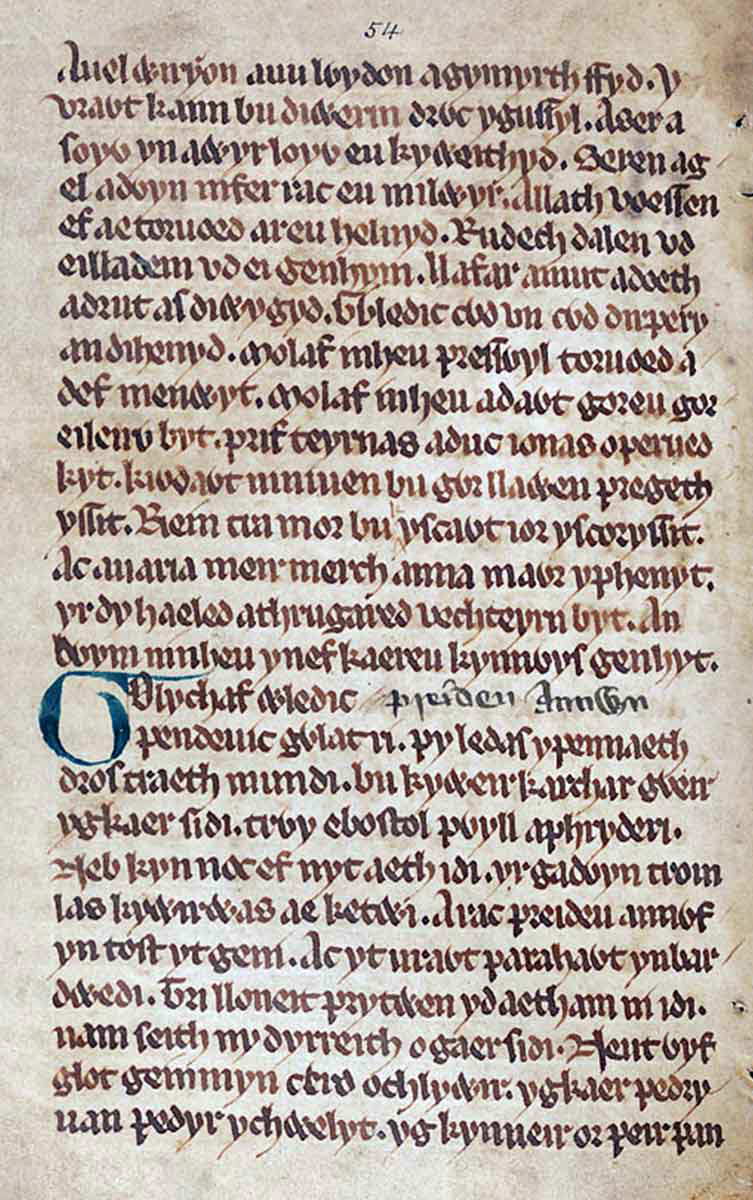 54
Auel wiryon auu lwydon agymyrth ffyd. y
vrawt kaun bu diwerin drwc ygussyl. Awer a
soyw yn awyr loyw eu kyweithyd. Seren ag
el adoyn infer rac eu milwyr. Allath voessen
ef ae toruoed areu heluyd. Rudech dalen vd
eilladem vd ei genhym. llafar amut adoeth
adrut as diwygwd. Gwledic cwd vn cwd duw pery
an dihenyd. Molaf inheu presswyl toruoed a
def menwyt. Molaf inheu adawt goreu gor
eilenw byt. prif teyrnas aduc ionas operued
kyt. kiwdawt niniuen bu gwr llawen pregeth
yssit. Riein tra mor bu yscawt ior yscoryssit.
Ac auaria meir merch anna mawr yphenyt.
yr dy haeled athrugared vechteyrn byt. An
bwym ninheu ynef kaereu kynnwys genhyt.
Golychaf wledic preiden Annwn
pendeuic gwlat ri. py ledas y pennaeth
dros traeth mundi. bu kyweir karchar gweir
ygkaer sidi. trwy ebostol pwyll aphryderi.
Neb kyn noc ef nyt aeth idi. yr gadwyn trom
las kywirwas ae ketwi. Arac preideu annwf
yn tost yt geni. Ac yt urawt parahawt ynbar
dwedi. Tri lloneit prytwen yd aetham ni idi.
nam seith ny dyrreith o gaer sidi. Neut wyf
glot geinmyn cerd ochlywir. ygkaer pedry
uan pedyr ychwelyt. yg kynneir or peir pan